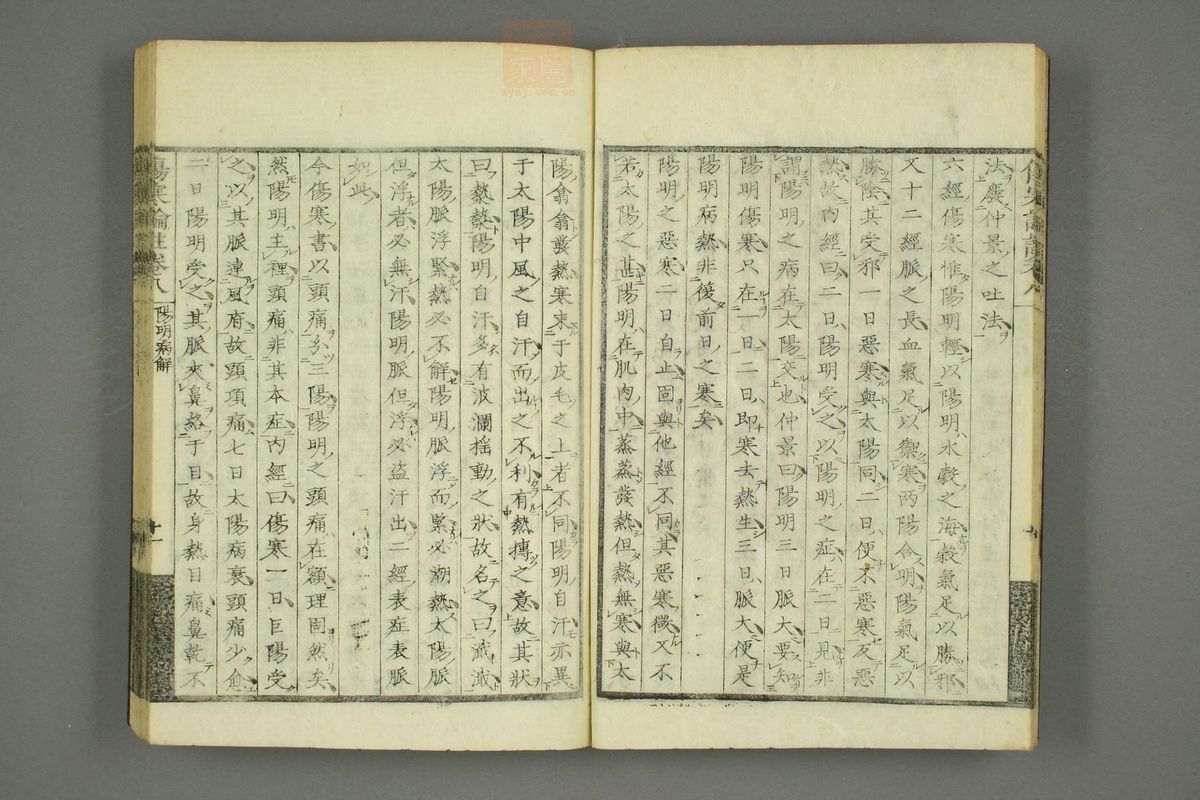 法廢仲景之吐法
六經傷寒惟陽明輕以陽明水穀之海穀氣足以勝邪
又十二經脈之長血氣足以禦寒兩陽合明陽氣足以
勝陰其受邪一日惡寒與太陽同二日便不惡寒反惡
熱故內經曰二日陽明受之以陽明之症在二日見非
謂陽明之病在太陽交也仲景曰陽明三日脈大要知
陽明傷寒只在一日二日即寒去熱生三日脈大便是
陽明病熱非復前日之寒矣
陽明之惡寒二日自止固與他經不同其惡寒微又不
若太陽之甚陽明在肌肉中蒸蒸發熱但熱無寒與太
陽翕翕發熱寒束于皮毛之上者不同陽明自汗亦異
于太陽中風之自汗而出之不利有熱摶之意故其狀
曰漐漐陽明自汗多有波瀾搖動之狀故名之曰濈濈
太陽脈浮緊熱必不解陽明脈浮而緊必潮熱太陽脈
但浮者必無汗陽明脈但浮必盜汗出二經表症表脈
如此
今傷寒書以頭痛分三陽陽明之頭痛在額理固然矣
然陽明主裡頭痛非其本症內經曰傷寒一日巨陽受
之以其脈連風府故頭項痛七日太陽病衰頭痛少愈
二日陽明受之其脈夾鼻絡于目故身熱目痛鼻乾不
傷寒論註卷八
陽明病解
十一
zysj.com.cn